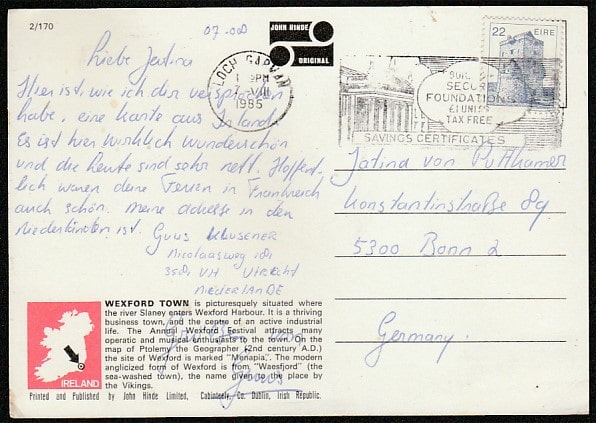 2/170
07.00
JOHN HINDE
ORIGINAL
Liebe Jatina
Hier ist, wie ich dir versprochen
habe, eine Karte aus Irland.
Es ist hier wirklich wunderschön
und die Leute sind sehr nett. Hoffent-
lich waren deine Ferien in Frankreich
auch schön. Meine Adresse in den
Niederlanden ist. Guus Klusener
Nicolaasweg 181
3581 VH Utrecht
NIEDERLANDE
Guus
LOCH GARMAN
PM
VIII
1985
22 EIRE
SECUR
FOUNDATIONS
TAX FREE
SAVINGS CERTIFICATES
Jatina von Puttkamer
Konstantinstraße 89
5300 Bonn 2
Germany.
IRELAND
WEXFORD TOWN is picturesquely situated where
the river Slaney enters Wexford Harbour. It is a thriving
business town, and the centre of an active industrial
life. The Annual Wexford Festival attracts many
operatic and musical enthusiasts to the town. On the
map of Ptolemy the Geographer (2nd century A.D.)
the site of Wexford is marked "Menapia,". The modern
anglicized form of Wexford is from "Waesfjord" (the
sea-washed town), the name given to the place by
the Vikings.
Printed and Published by John Hinde Limited, Cabinteely, Co. Dublin, Irish Republic.